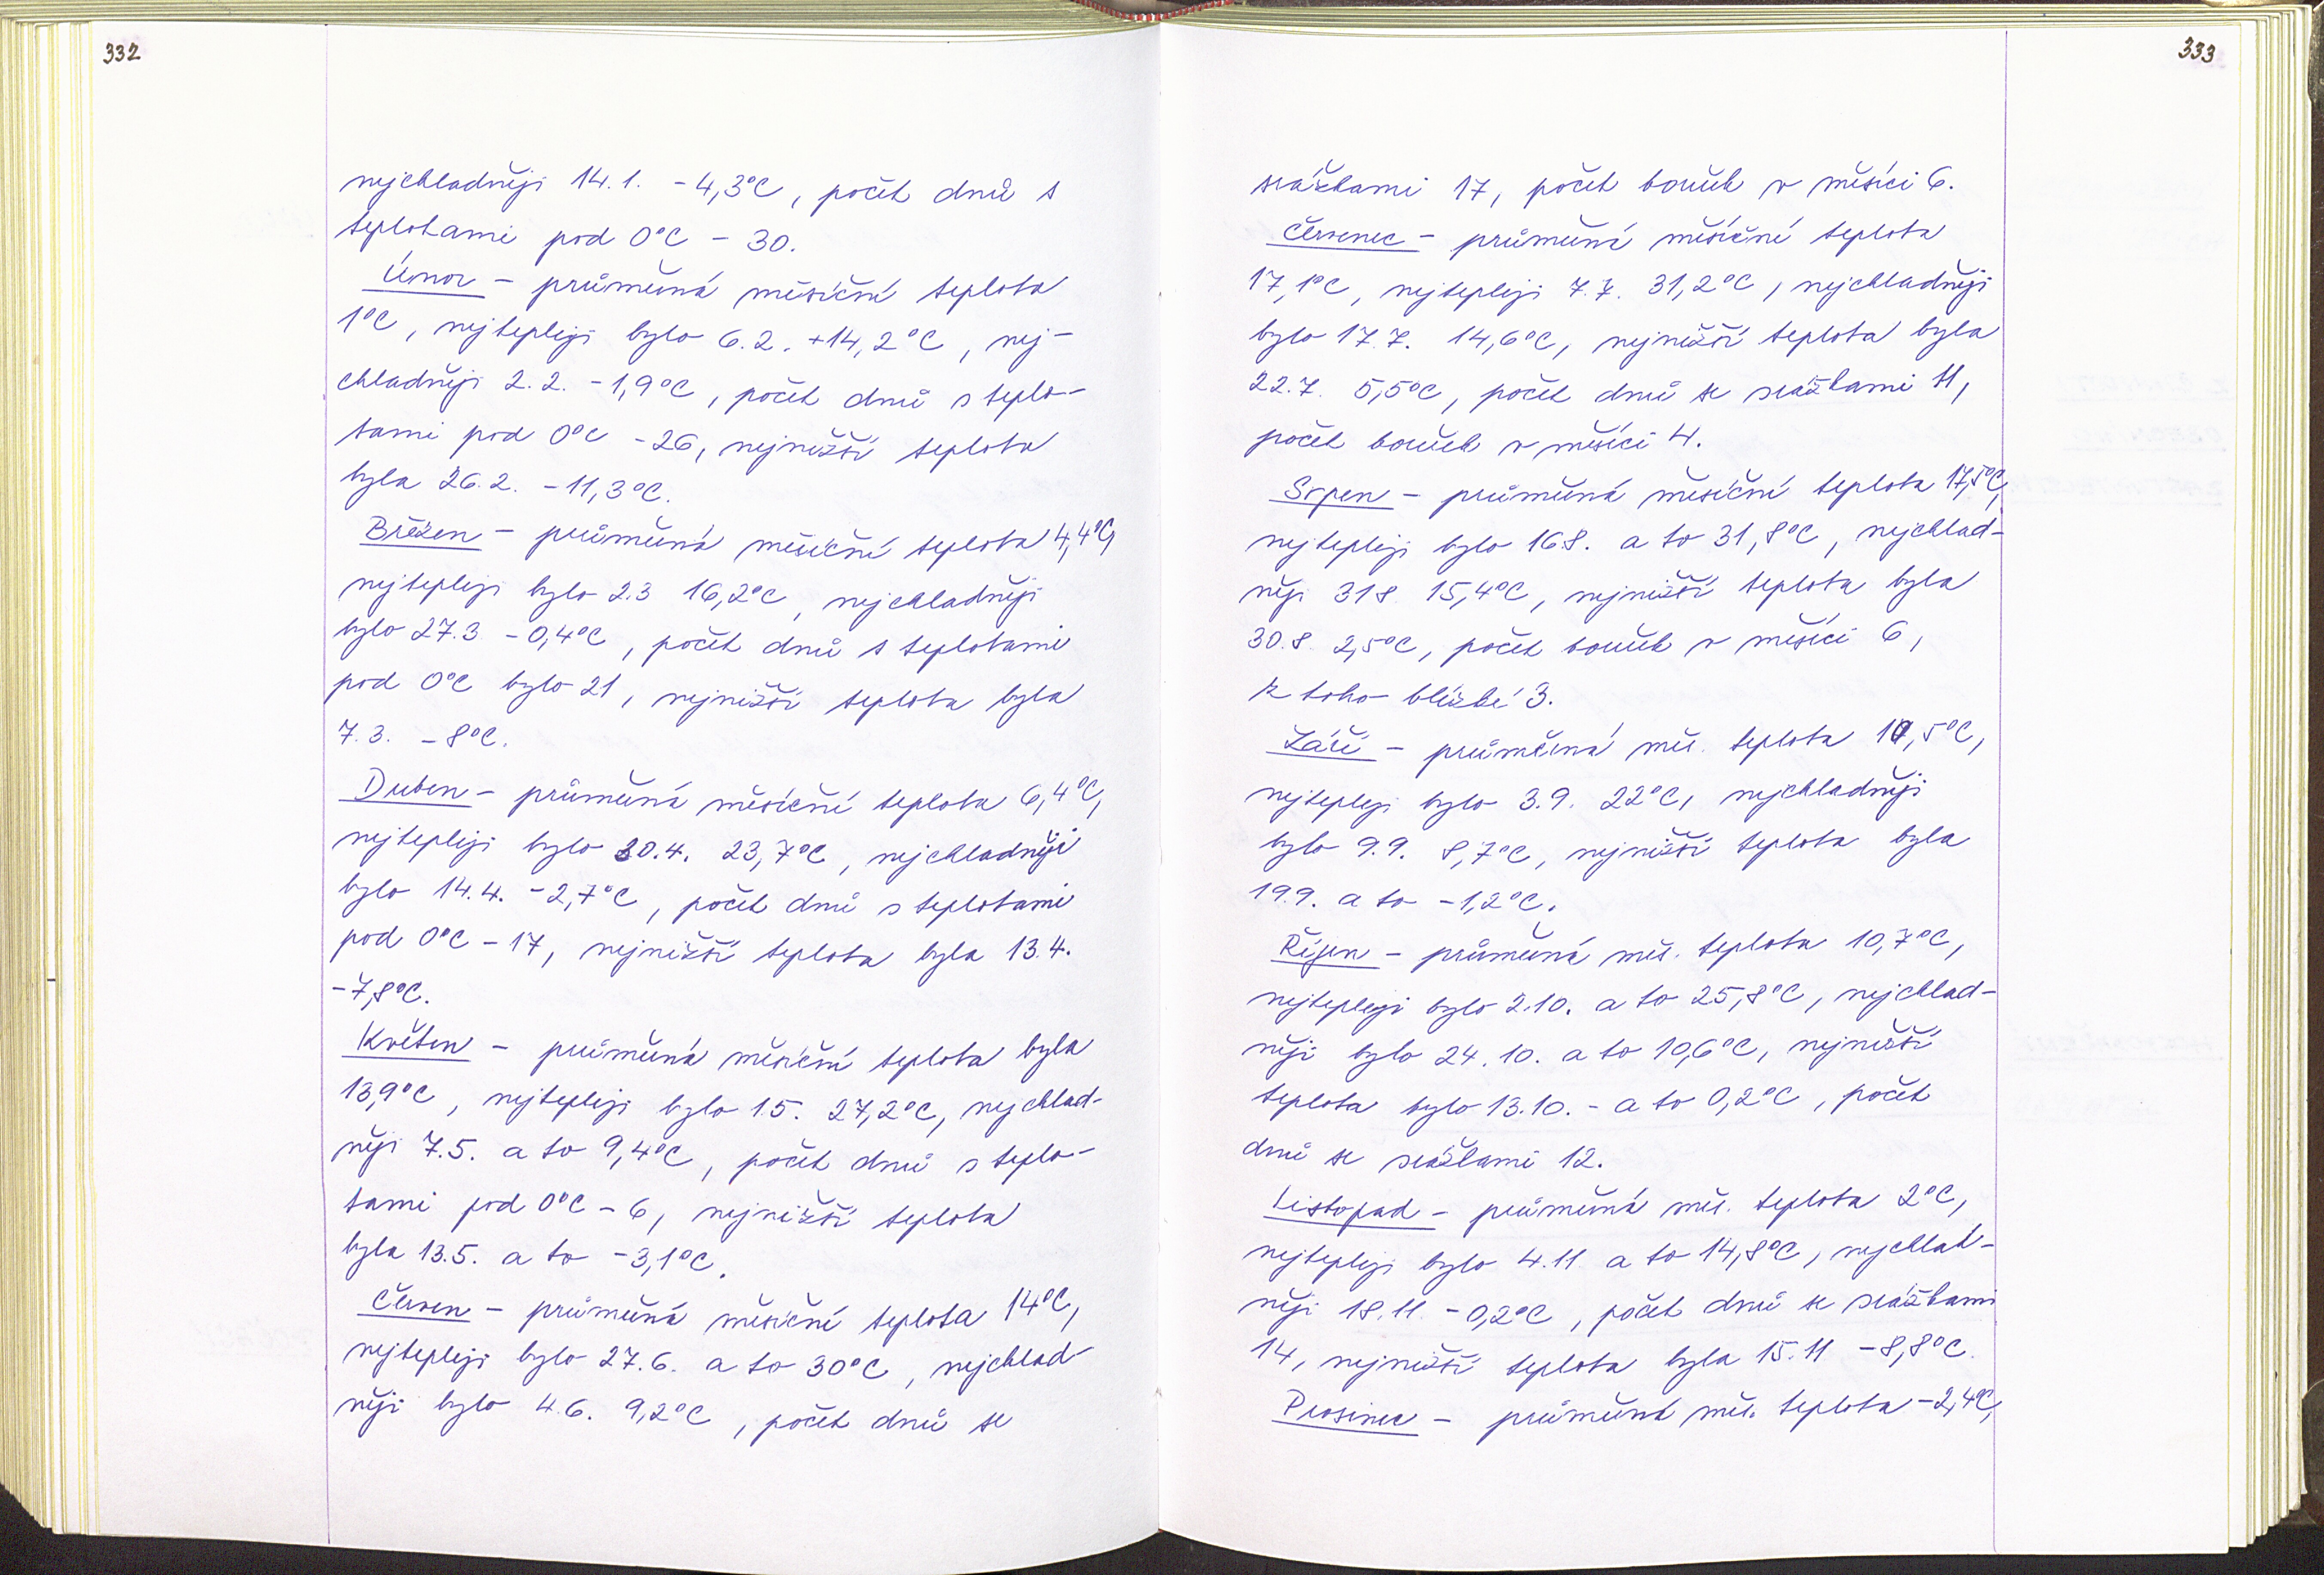 332
nejchladněji 14.1. -4,3°C, počet dnů s
teplotami pod 0°C - 30.
Únor - průměrná měsíční teplota
1°C, nejtepleji bylo 6.2. +14,2°C, nej-
chladněji 2.2. -1,9°C, počet dnů s teplo-
tami pod 0°C -26, nejnižší teplota
byla 26.2. -11,3°C.
Březen - průměrná měsíční teplota 4,4°C,
nejtepleji bylo 2.3 16,2°C, nejchladněji
bylo 27.3 -0,4°C, počet dnů s teplotami
pod 0°C bylo 21, nejnižší teplota byla
7.3. -8°C.
Duben - průměrná měsíční teplota 6,4°C,
nejtepleji bylo 30.4. 23,7°C, nejchladněji
bylo 14.4. -2,7°C, počet dnů s teplotami
pod 0°C - 17, nejnižší teplota byla 13.4.
-7,8°C.
Květen - průměrná měsíční teplota byla
13,9°C, nejtepleji bylo 1.5. 27,2°C, nejchlad-
něji 7.5. a to 9,4°C, počet dnů s teplo-
tami pod 0°C - 6, nejnižší teplota
byla 13.5. a to -3,1°C.
Červen - průměrná měsíční teplota 14°C,
nejtepleji bylo 27.6. a to 30°C, nejchlad-
něji bylo 4.6. 9,2°C, počet dnů se
333
srážkami 17, počet bouřek v měsíci 6.
Červenec - průměrná měsíční teplota
17,1°C, nejtepleji 7.7. 31,2°C, nejchladněji
bylo 17.7. 14,6°C, nejnižší teplota byla
22.7. 5,5°C, počet dnů se srážkami 11,
počet bouřek v měsíci 4.
Srpen - průměrná měsíční teplota 17,5°C,
nejtepleji bylo 16.8. a to 31,8°C, nejchlad-
něji 31.8 15,4°C, nejnižší teplota byla
30.8. 2,5°C, počet bouřek v měsíci 6,
z toho blízké 3.
Září - průměrná měs. teplota ,5°C,
nejtepleji bylo 3.9. 22°C, nejchladněji
bylo 9.9. 8,7°C, nejnižší teplota byla
19.9. a to -1,2°C.
Říjen - průměrná měs. teplota 10,7°C,
nejtepleji bylo 2.10. a to 25,8°C, nejchlad-
něji bylo 24.10. a to 10,6°C, nejnižší
teplota bylo 13.10. - a to 0,2°C, počet
dnů se srážkami 12.
Listopad - průměrná měs. teplota 2°C,
nejtepleji bylo 4.11. a to 14,8°C, nejchlad-
něji 18.11. -0,2°C, počet dnů se srážkami
14, nejnižší teplota byla 15.11 -8,8°C.
Prosinec - průměrná měs. teplota -2,4°C,